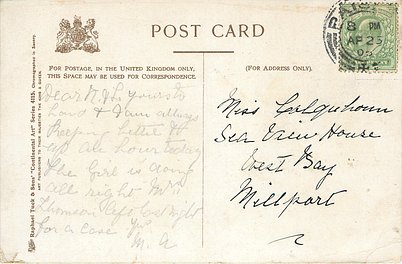 POST CARD
FOR POSTAGE, IN THE UNITED KINGDOM ONLY,
THIS SPACE MAY BE USED FOR CORRESPONDENCE.
(FOR ADDRESS ONLY).
Raphael Tuck & Sons' "Continental Art" Series
ART PUBLISHERS TO THEIR MAJESTIES THE KING & QUEEN.
8 PM
AP 23
Dear yours to
hand & I am
better
The Girl is doing
all right Mrs
Thomson left last night
for a case
M. A
Miss Colquhoun
Sea View House
West Bay
Millport